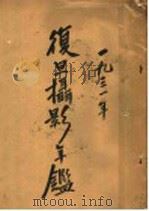 一九三一年
復旦攝影年鑑